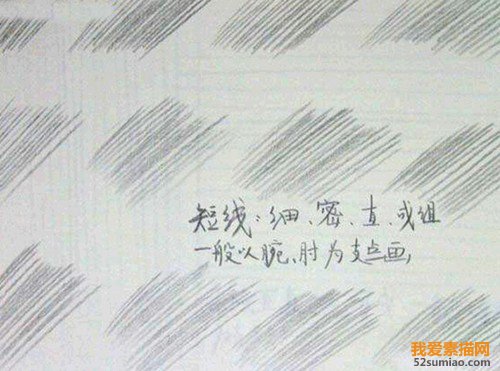 短线:细、密、直、成组
一般以腕、肘为支点画,
我爱素描网
52sumiao.com